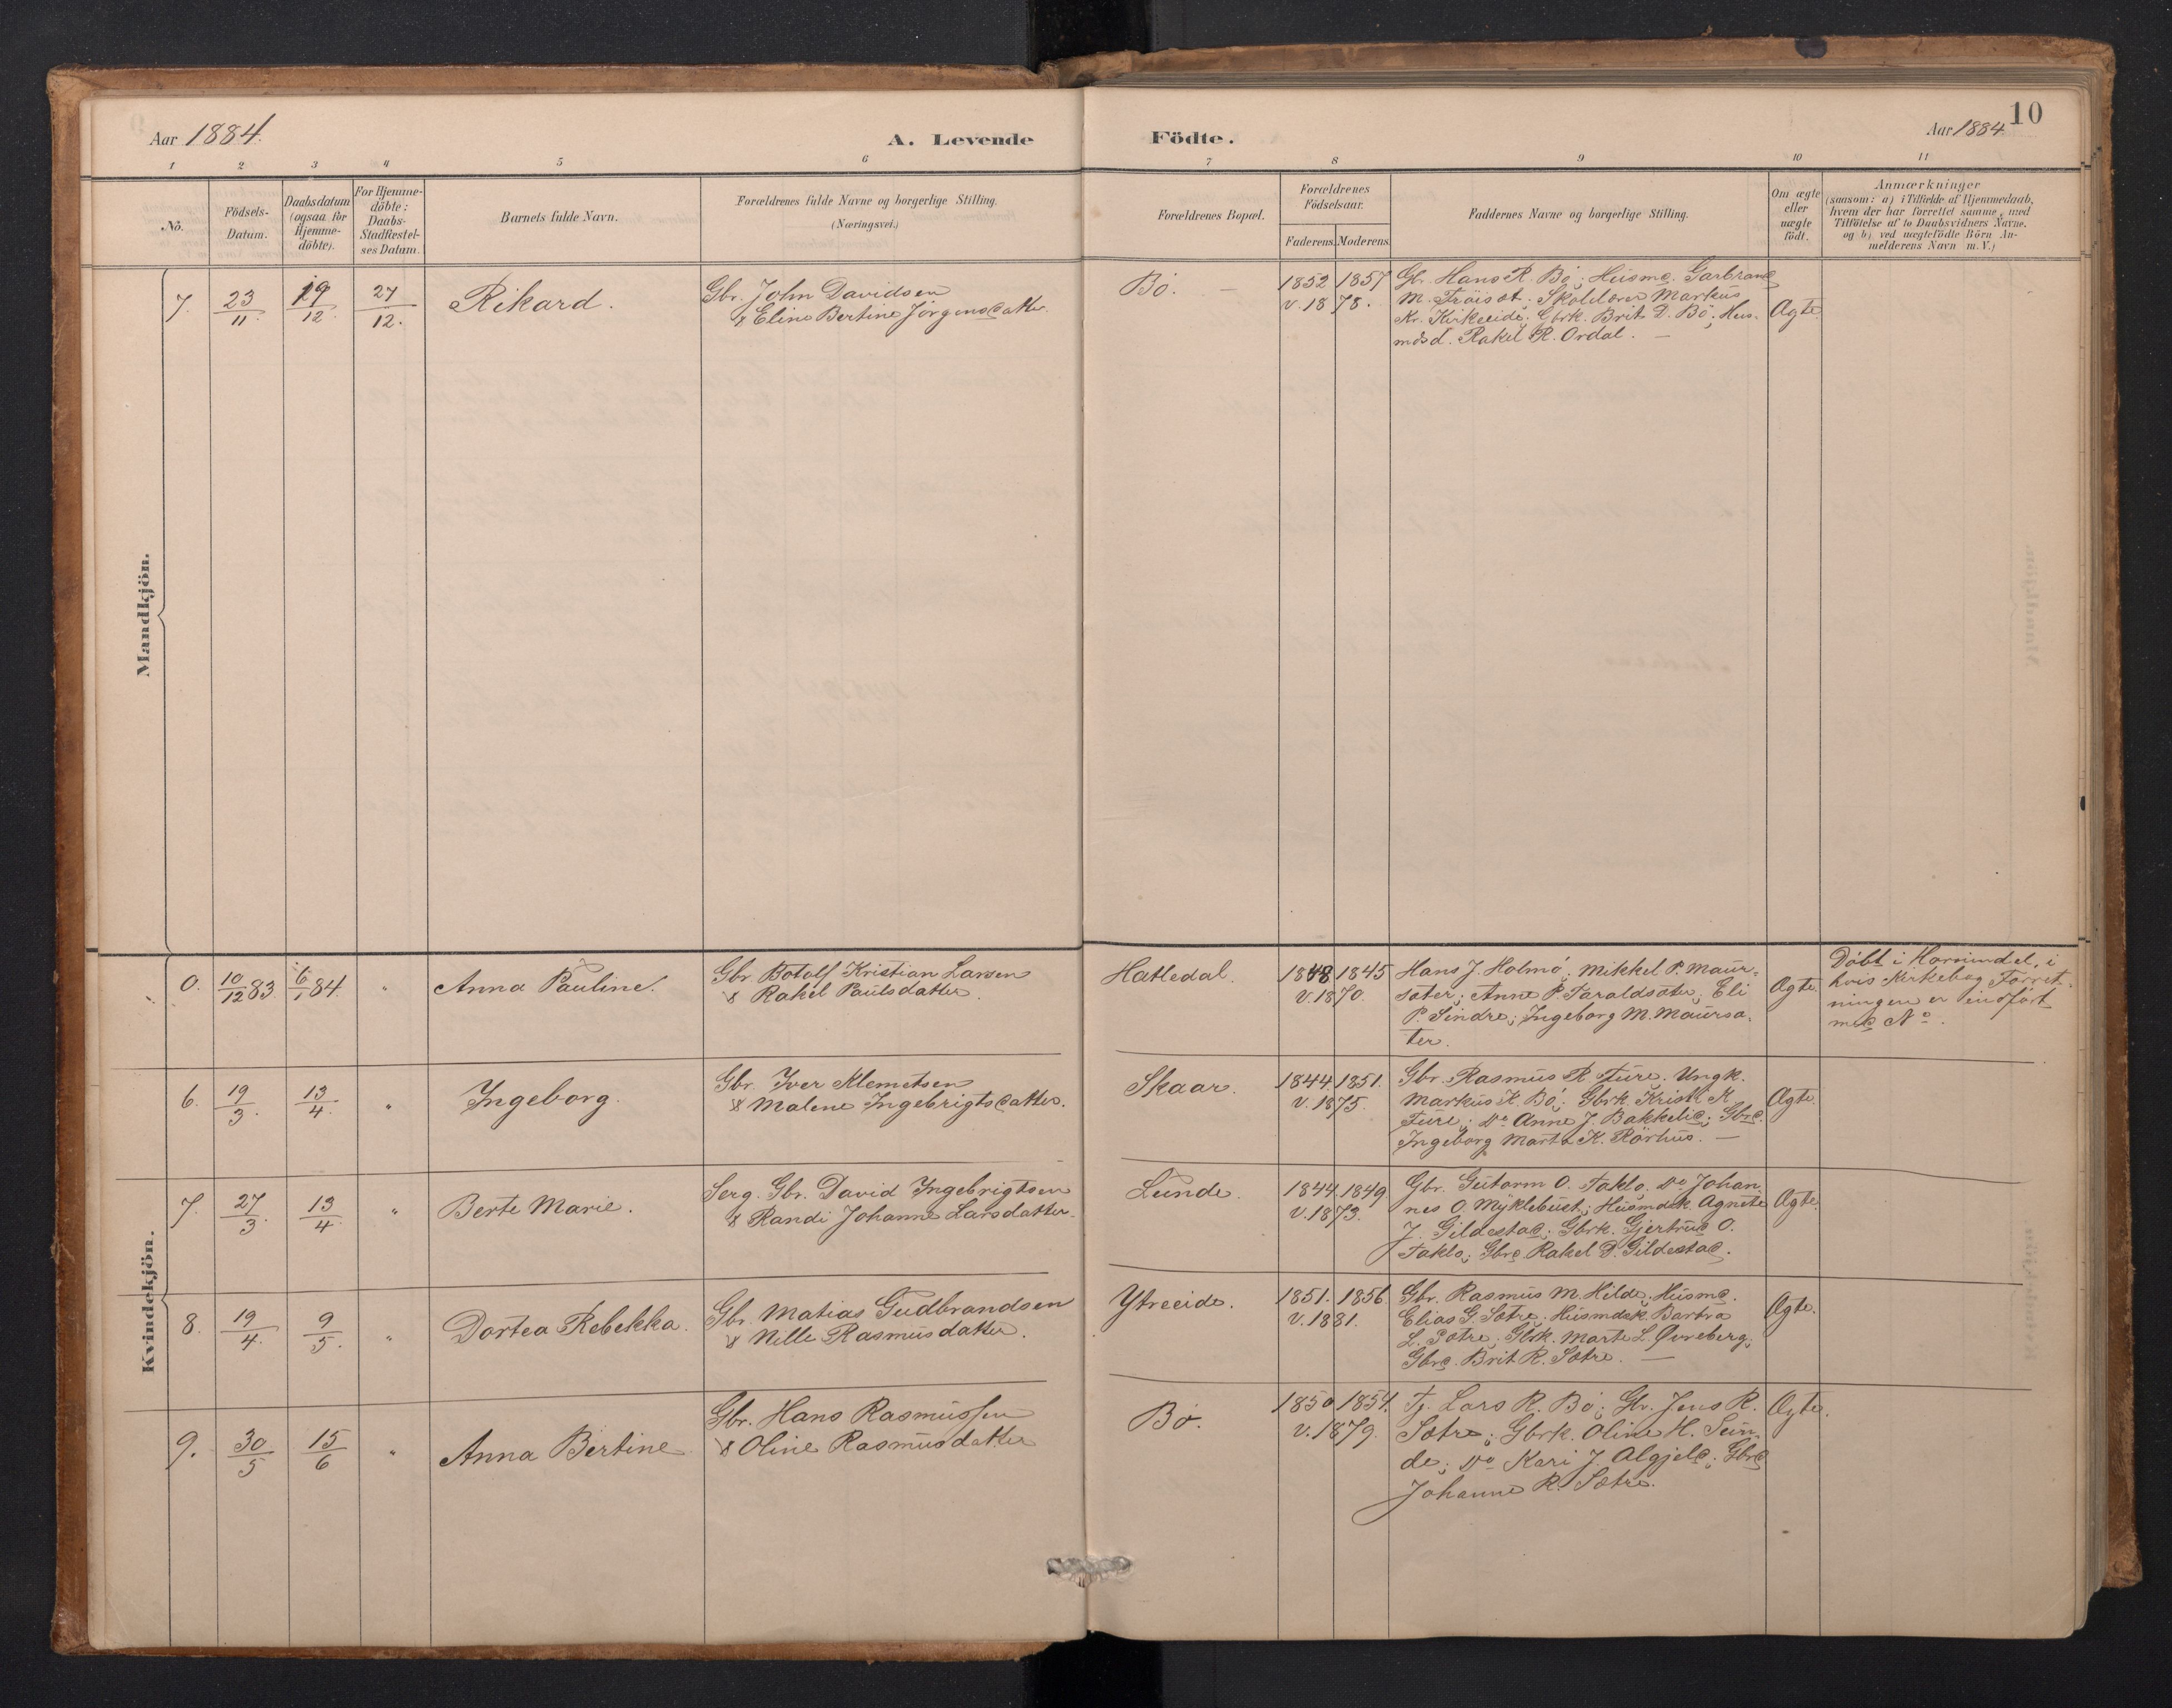 Aar 1884.
A. Levende
Födte.
Aar 1884
10
1 2 3 4 5 6 7 8 9 10 11
No.
Födsels-
Datum.
Daabsdatum
(ogsaa for
Hjemme-
döbte).
For Hjemme-
döbte:
Daabs-
Stadfæstel-
ses Datum.
Barnets fulde Navn.
Forældrenes fulde Navne og borgerlige Stilling.
(Næringsvei.)
Forældrenes Bopæl.
Forældrenes
Födselsaar.
Faderens. Moderens.
Faddernes Navne og borgerlige Stilling.
Om ægte
eller
uægte
födt.
Anmærkninger
(saasom: a) i Tilfælde af Hjemmedaab,
hvem der har forrettet samme, med
Tilföielse af to Daabsvidners Navne.
og b) ved uægtefödte Börn An-
melderens Navn m. V.)
Mandkjön.
7. 23/11. 19/12 27/12. Rikard.
Gbr. John Davidsen
& Eline Bertine Jørgensdatter.
Bø. —
1852 1857
v. 1878.
Gbr. Hans R. Bø; Husmd. Garbrand
M. Frøiset; Skolelærer Markus
Kr. Kirkeeide; Gbrk. Brit D. Bø; Hus-
mdsd. Rakel R. Ordal. —
Ægte.
Kvindekjön.
0. 10/12 83 6/1 84. " Anna Pauline.
Gbr. Botolf Kristian Larsen
& Rakel Paulsdatter.
Hatledal.
1848 1845
v. 1870.
Hans J. Holmø; Mikkel P. Maur-
sæter; Anne P. Taraldsæter; Eli
P. Sindre; Ingeborg M. Maursæ-
ter.
Ægte.
Døbt i Hornindal, i
hvis Kirkebog Forret-
ningen er indført
med No.
6. 19/3. 13/4. " Ingeborg.
Gbr. Iver Klemetsen
& Malene Ingebrigtsdatter.
Skaar.
1844. 1851.
v. 1875.
Gbr. Rasmus R. Fure. Ungk.
Markus K. Bø; Gbrk. Kristi K.
Fure; Do Anne J. Bakkelid; Gbrd.
Ingeborg Marta K. Rørhus. —
Ægte.
7. 27/3. 13/4. " Berte Marie.
Serg. Gbr. David Ingebrigtsen
& Randi Johanne Larsdatter.
Lunde.
1844. 1849.
v. 1873.
Gbr. Gutorm O. Taklo. Do Johan-
nes O. Myklebust; Husmdsk. Agnete
J. Gildestad; Gbrk. Gjertrud O.
Taklo; Gbrd. Rakel D. Gildestad.
Ægte.
8. 19/4. 9/5. " Dortea Rebekka.
Gbr. Matias Gudbrandsen
& Nille Rasmusdatter.
Ytreeide.
1851. 1856
v. 1881.
Gbr. Rasmus M. Hilde. Husmd.
Elias G. Sætre; Husmdsk. Barbra
L. Sætre. Gbrk. Marte L. Øvreberg;
Gbrd. Brit R. Sætre. —
Ægte.
9. 30/5 15/6 " Anna Bertine
Gbr. Hans Rasmussen
& Oline Rasmusdatter
Bø.
1850 1854.
v. 1879.
Tj. Lars R. Bø; Gbr. Jens R.
Sætre; Gbrk. Oline H. Sun-
de; Do Kari J. Algjeld; Gbrd
Johanne R. Sætre.
Ægte.